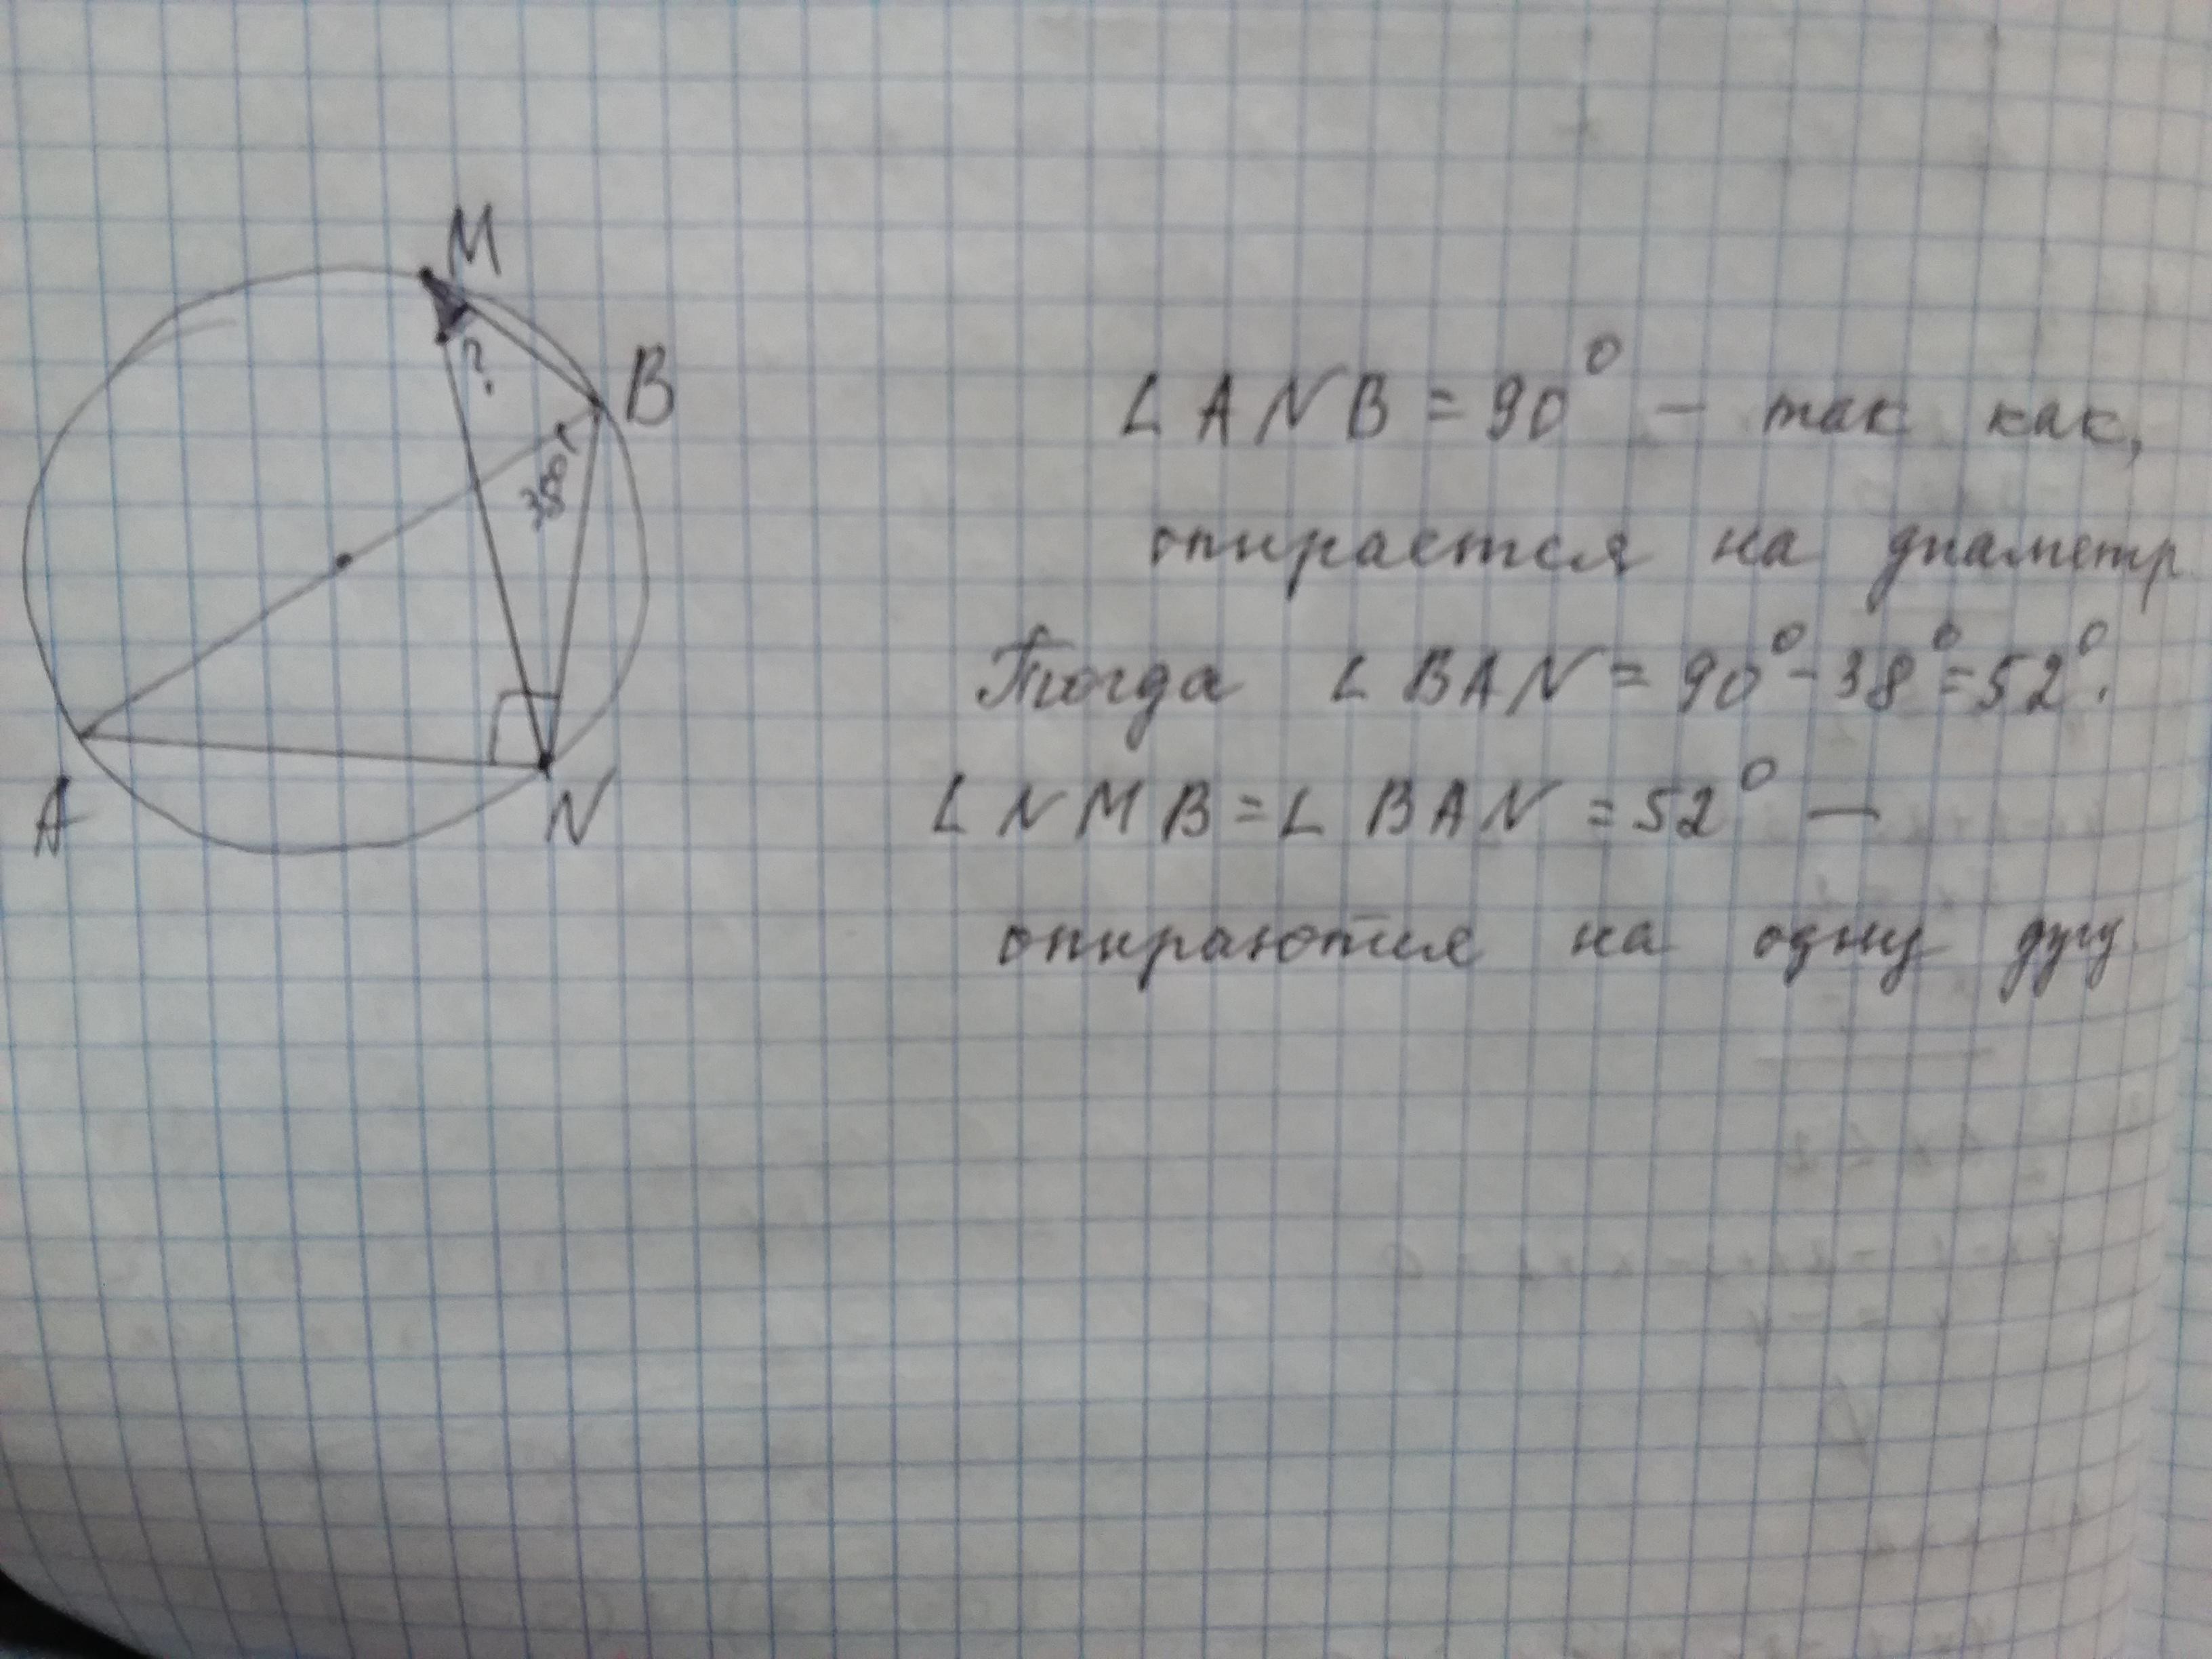 M
?
B
38°
A
N
∠ANB = 90° – так как,
опирается на диаметр
Тогда ∠BAN = 90° - 38° = 52°.
∠NMB = ∠BAN = 52° —
опираются на одну дугу.